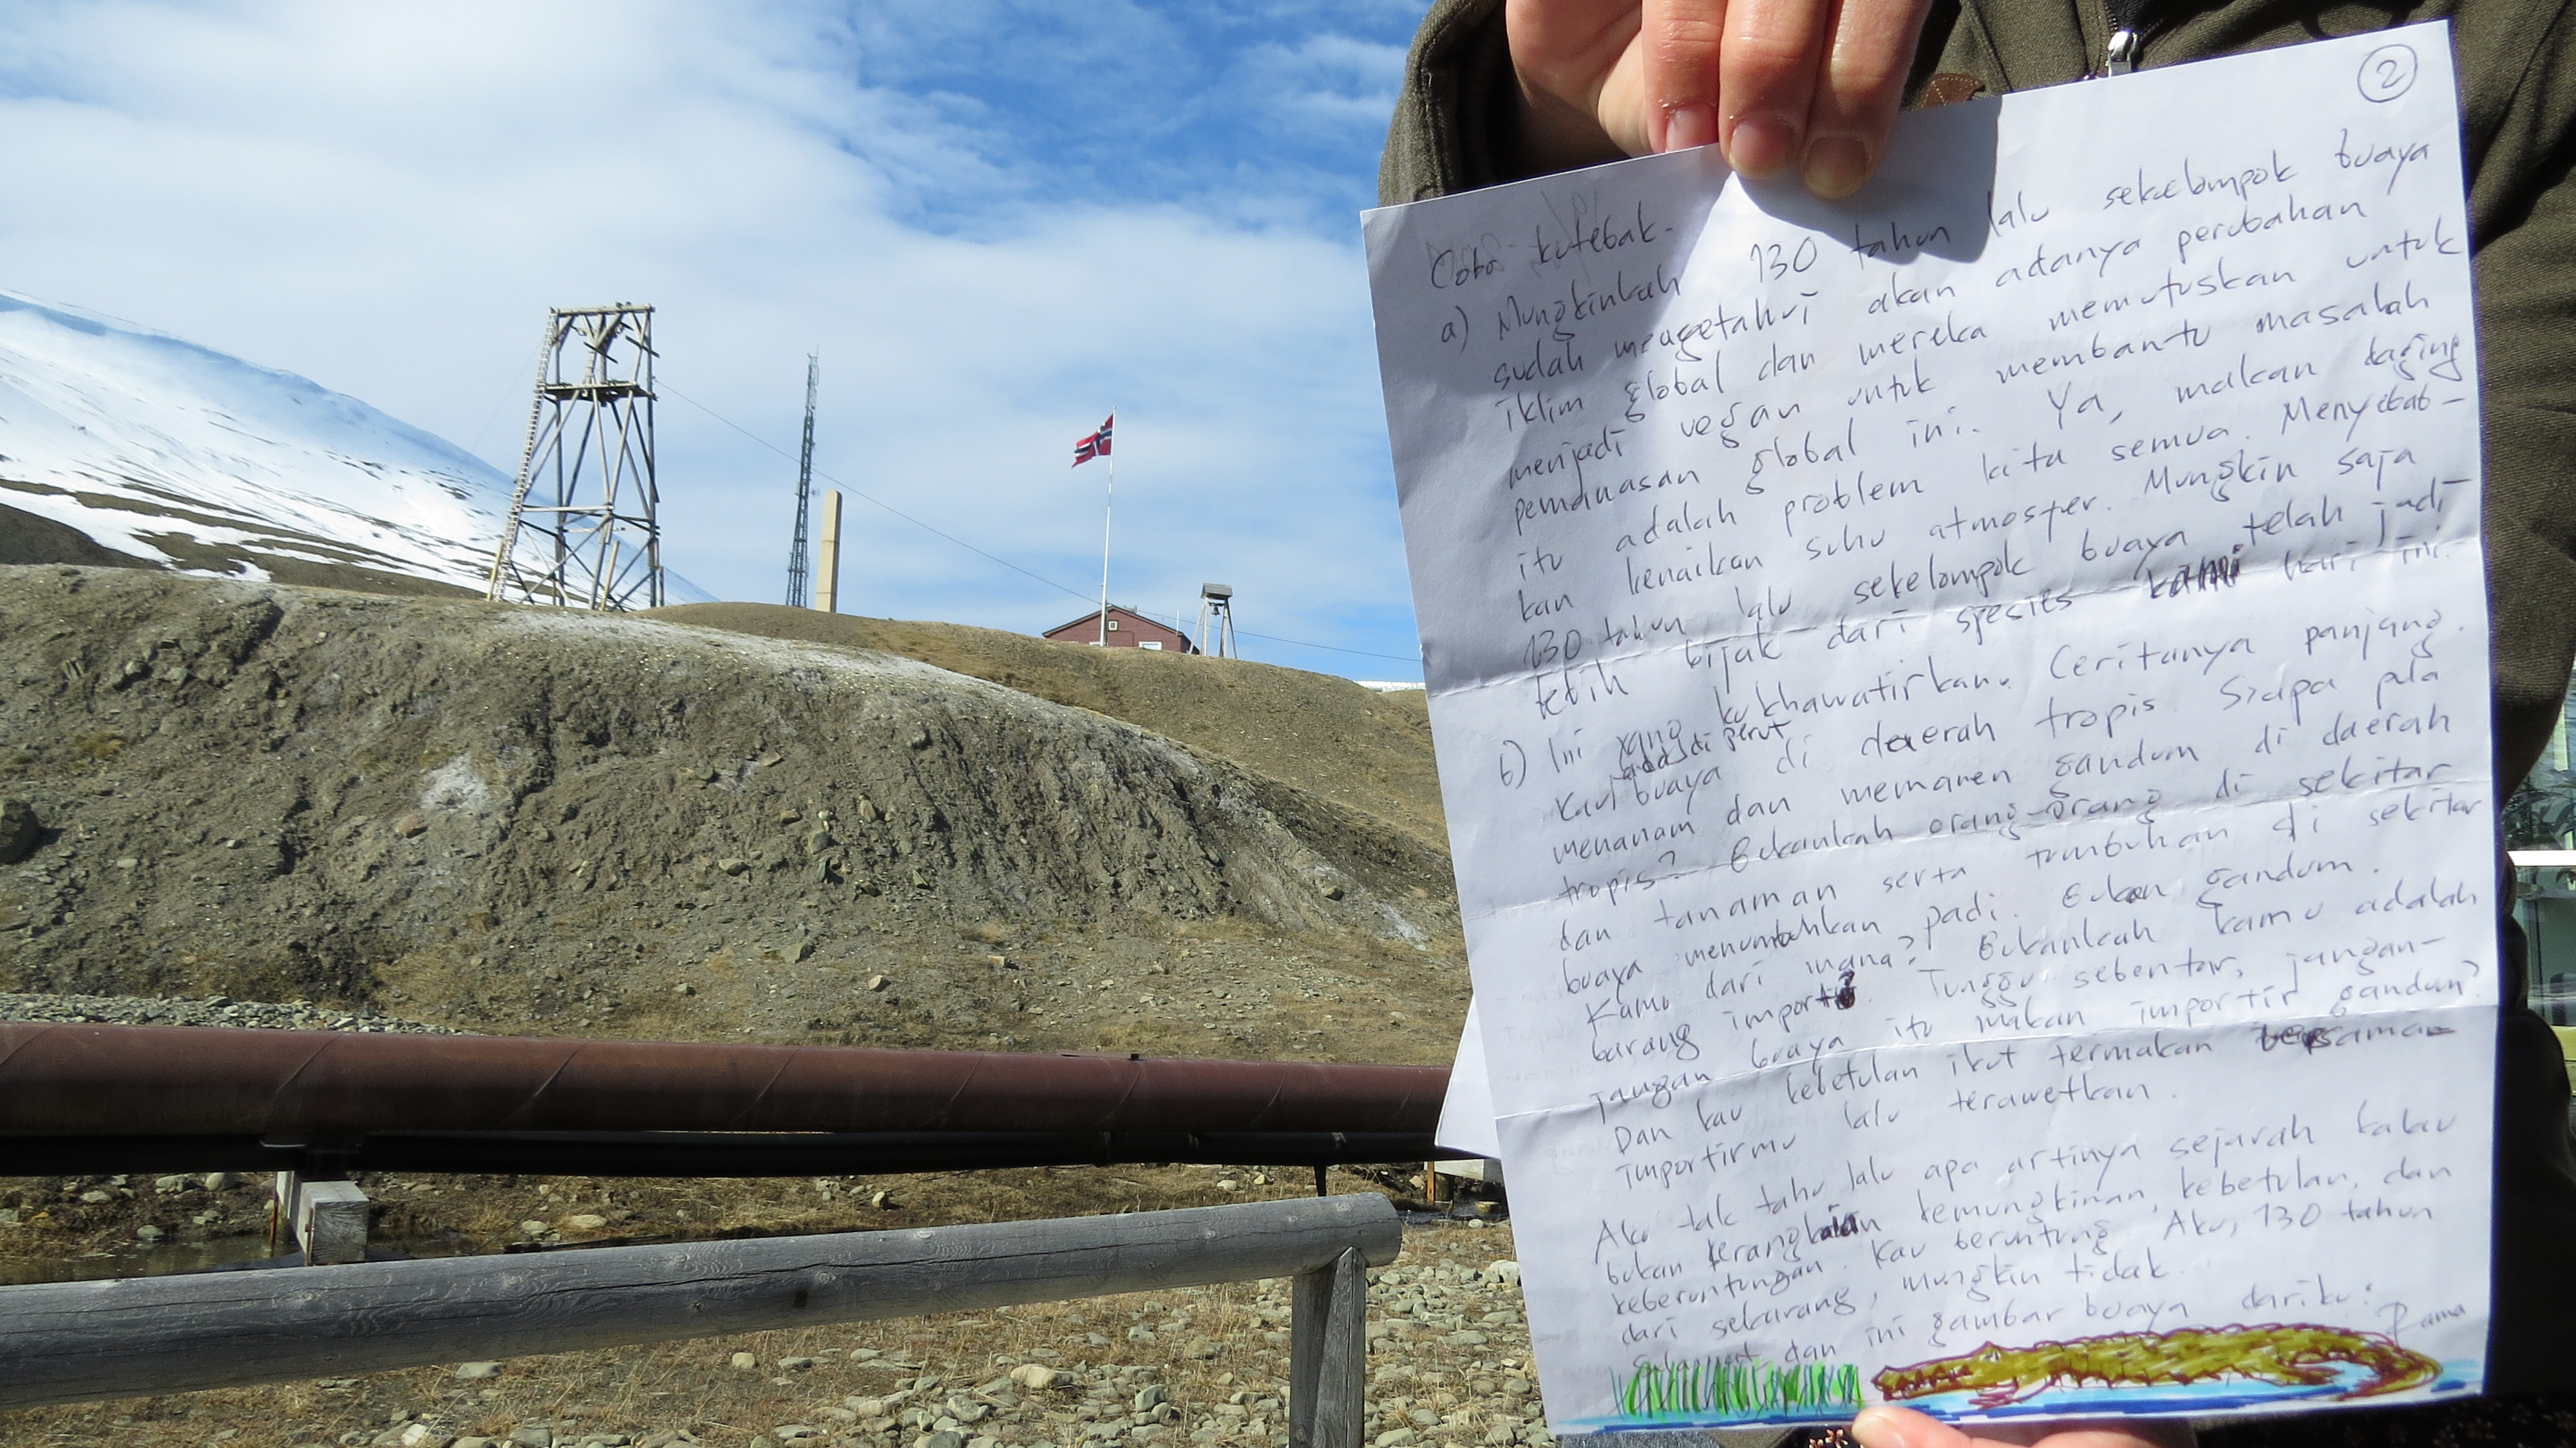 2
Coba kutebak.
a) Mungkinkah 130 tahun lalu sekelompok buaya
sudah mengetahui akan adanya perubahan
iklim global dan mereka memutuskan untuk
menjadi vegan untuk membantu masalah
pemanasan global ini. Ya, makan daging
itu adalah problem kita semua. Menyebab-
kan kenaikan suhu atmosfer. Mungkin saja
130 tahun lalu sekelompok buaya telah jadi
lebih bijak dari spesies kami hari ini.
b) Ini yang kukhawatirkan. Ceritanya panjang.
Kau ada di perut buaya di daerah tropis. Siapa pula
menanam dan memanen gandum di daerah
tropis? Bukankah orang-orang di sekitar
dan tanaman serta tumbuhan di sekitar
buaya menumbuhkan padi. Bukan gandum.
Kamu dari mana? Bukankah kamu adalah
barang import. Tunggu sebentar, jangan-
jangan buaya itu makan importir gandum?
Dan kau kebetulan ikut termakan bersama
importirmu lalu terawetkan.
Aku tak tahu lalu apa artinya sejarah kalau
bukan kerangkaian kemungkinan, kebetulan, dan
keberuntungan. Kau beruntung. Aku, 130 tahun
dari sekarang, mungkin tidak.
Selamat dan ini gambar buaya dariku:
Rama